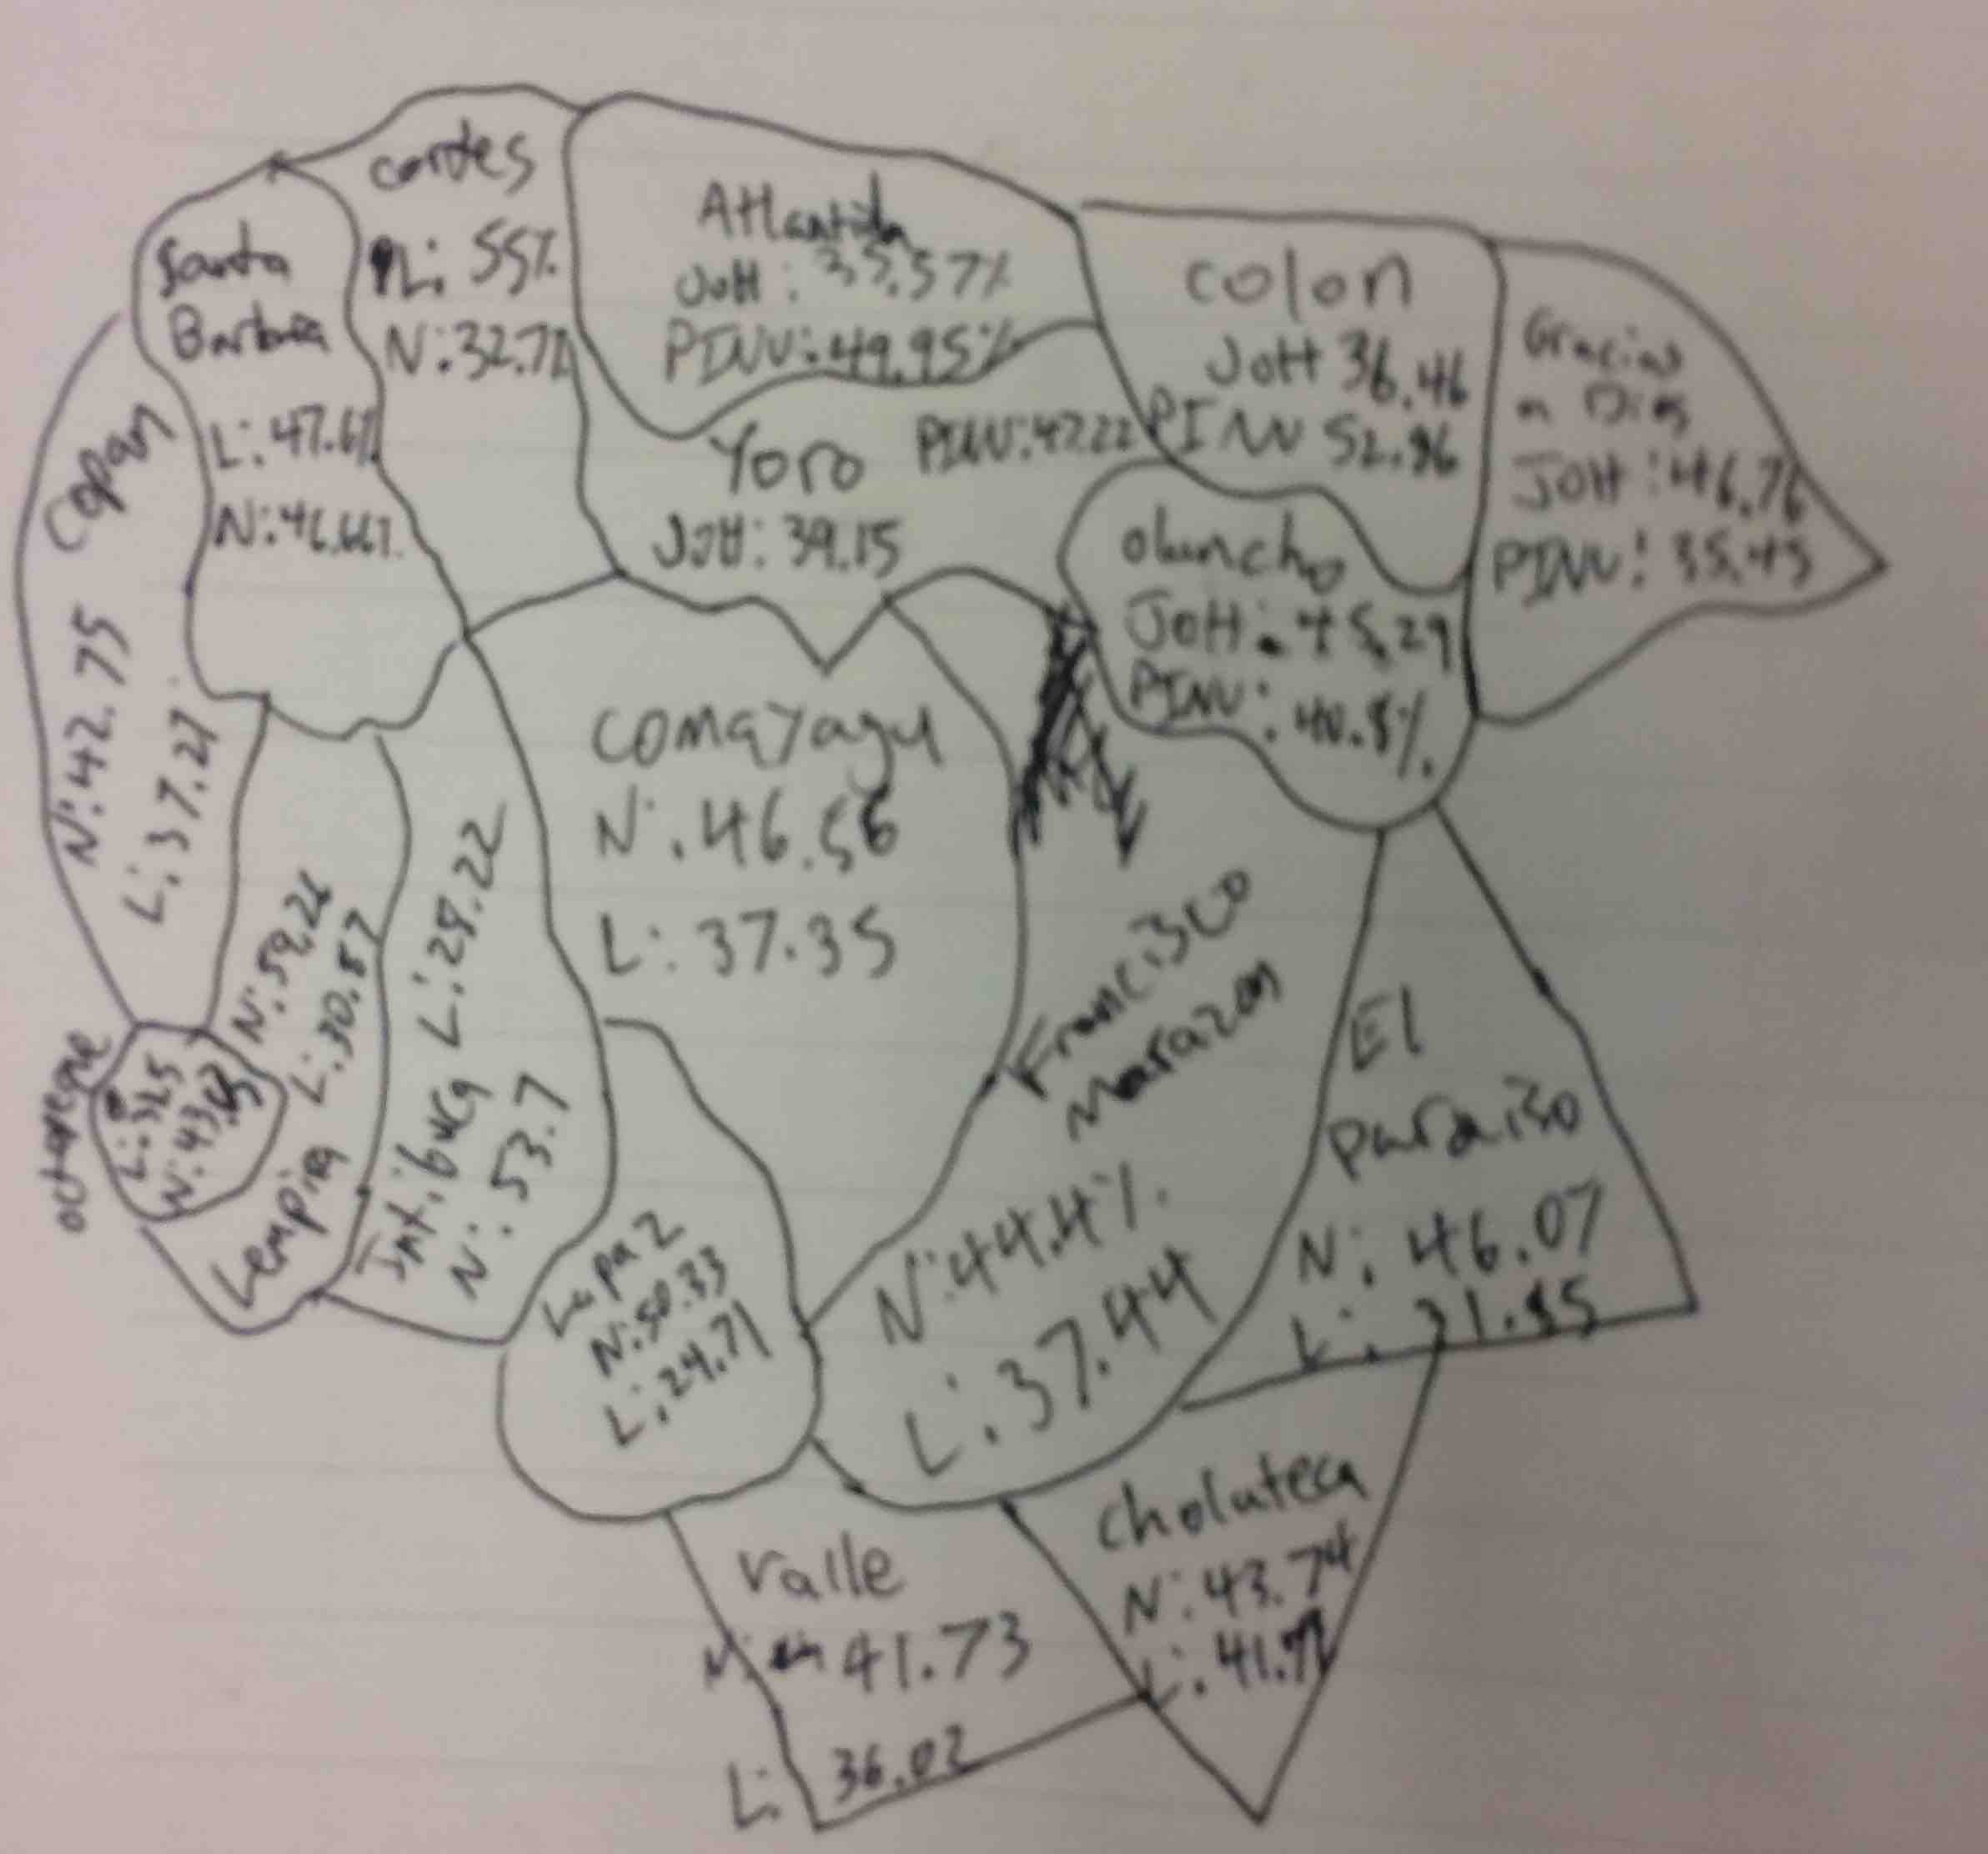 cortes
Li 55%
N:32.7%
Atlantida
JOH: 35.57%
PINU:49.95%
colon
JOH 36.46
PINU 52.96
Gracias
a Dios
JOH:46.76
PINU: 35.45
Santa
Barbara
L: 47.67
N:46.667.
Copan
N:42.75
L:37.27
Yoro
PINU:47.22
JOH: 39.15
oluncho
JOH: 45.29
PINU: 40.8%
comayagu
N:46.56
L: 37.35
Francisco
Morazon
N:44.4%
L:37.44
El
paraiso
N: 46.07
L: 31.85
octapeque
L:325
Lempira
N:59.26
L:30.57
Intibuca L:28.22
N: 53.7
Lapaz
N:50.33
L:24.71
Valle
41.73
L: 36.02
choluteca
N:43.74
L:41.